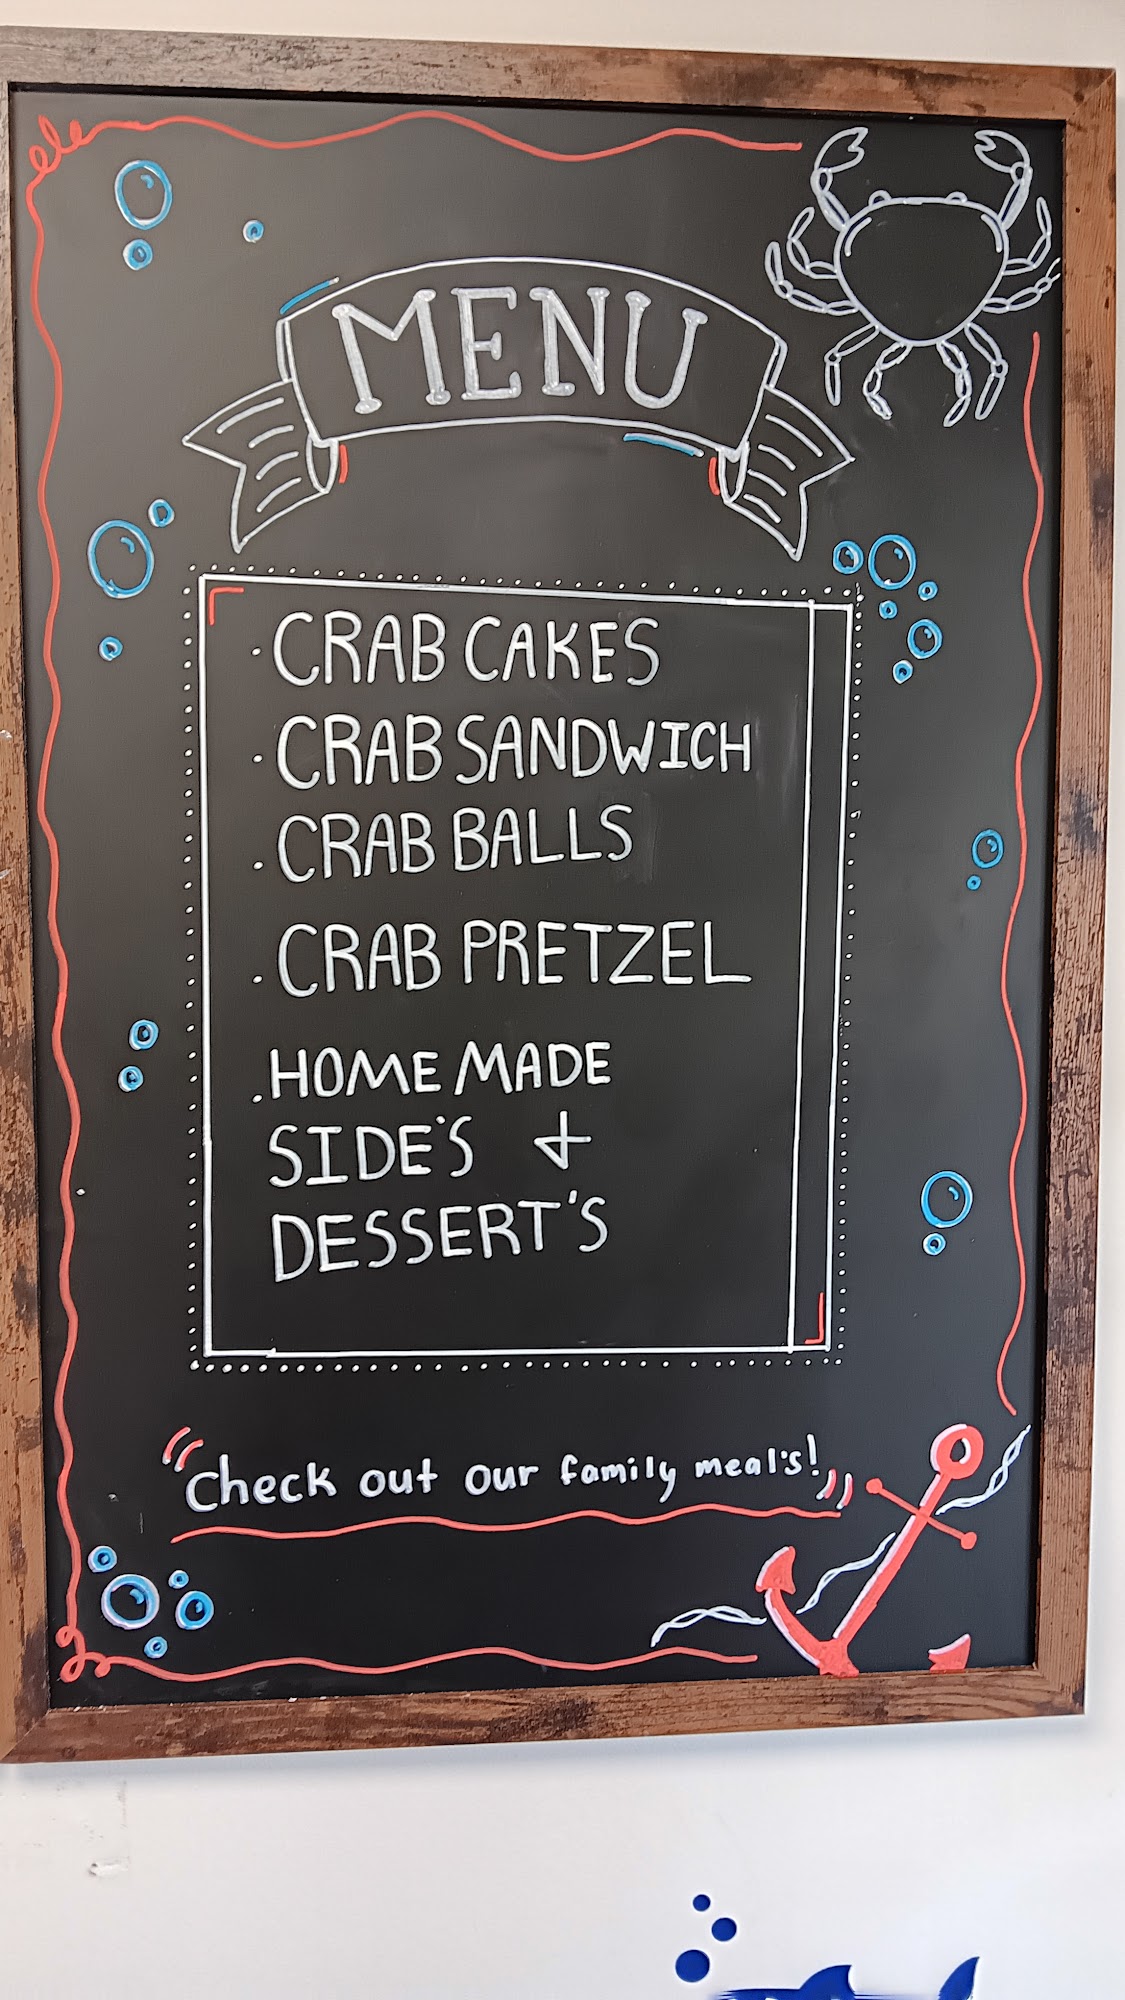 MENU
· CRAB CAKES
· CRAB SANDWICH
· CRAB BALLS
· CRAB PRETZEL
· HOME MADE
SIDE'S &
DESSERT'S
"Check out our family meal's!"